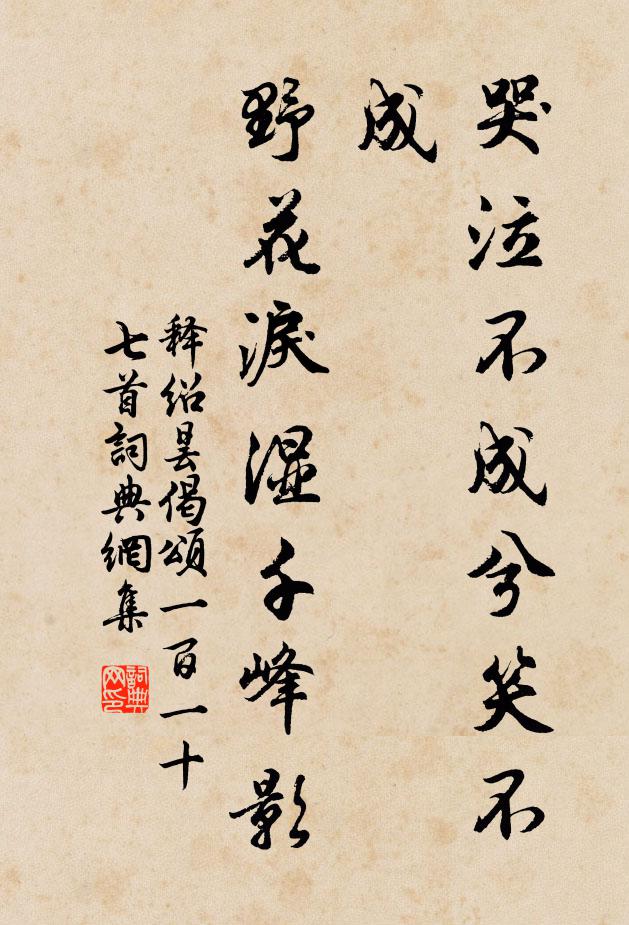 哭泣不成兮笑不
成
野花淚濕千峰影
释紹曇偈頌一百一十
七首詞典網集
詞典网印